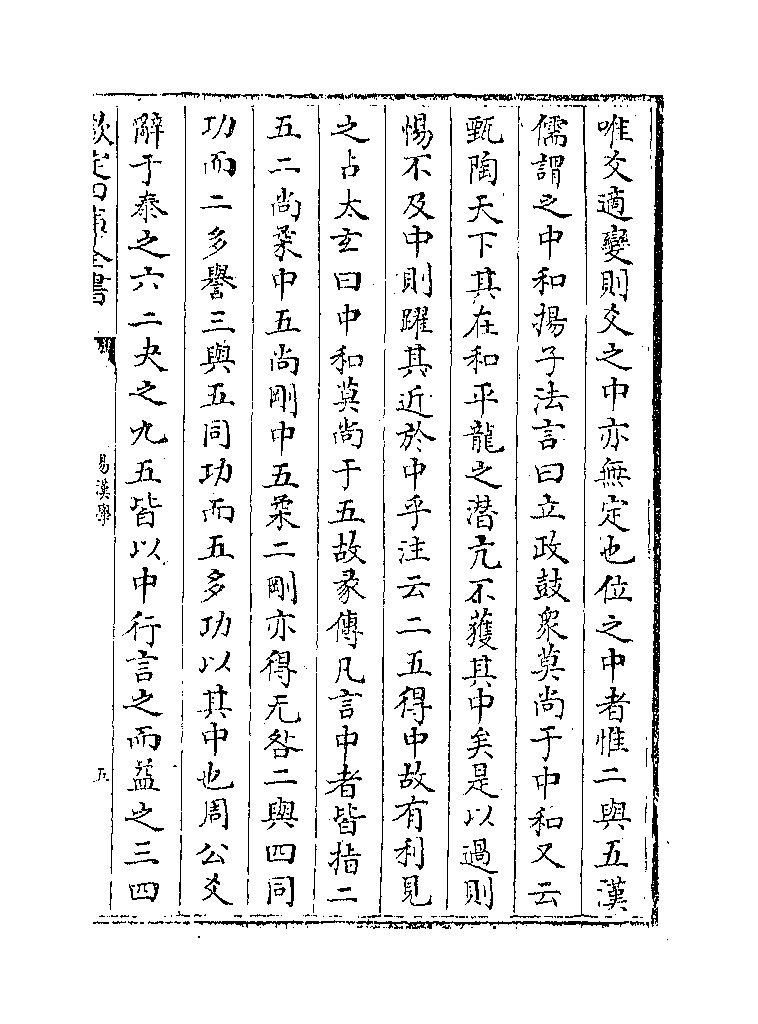 唯爻適變則爻之中亦無定也位之中者惟二與五漢
儒謂之中和揚子法言曰立政鼓衆莫尚于中和又云
甄陶天下其在和乎龍之潜亢不獲其中矣是以過則
惕不及中則躍其近於中乎注云二五得中故有利見
之占太玄曰中和莫尚于五故彖傳凡言中者皆指二
五二尚柔中五尚剛中五柔二剛亦得无咎二與四同
功而二多譽三與五同功而五多功以其中也周公爻
辭于泰之六二夬之九五皆以中行言之而益之三四
欽定四庫全書
易漢學
五